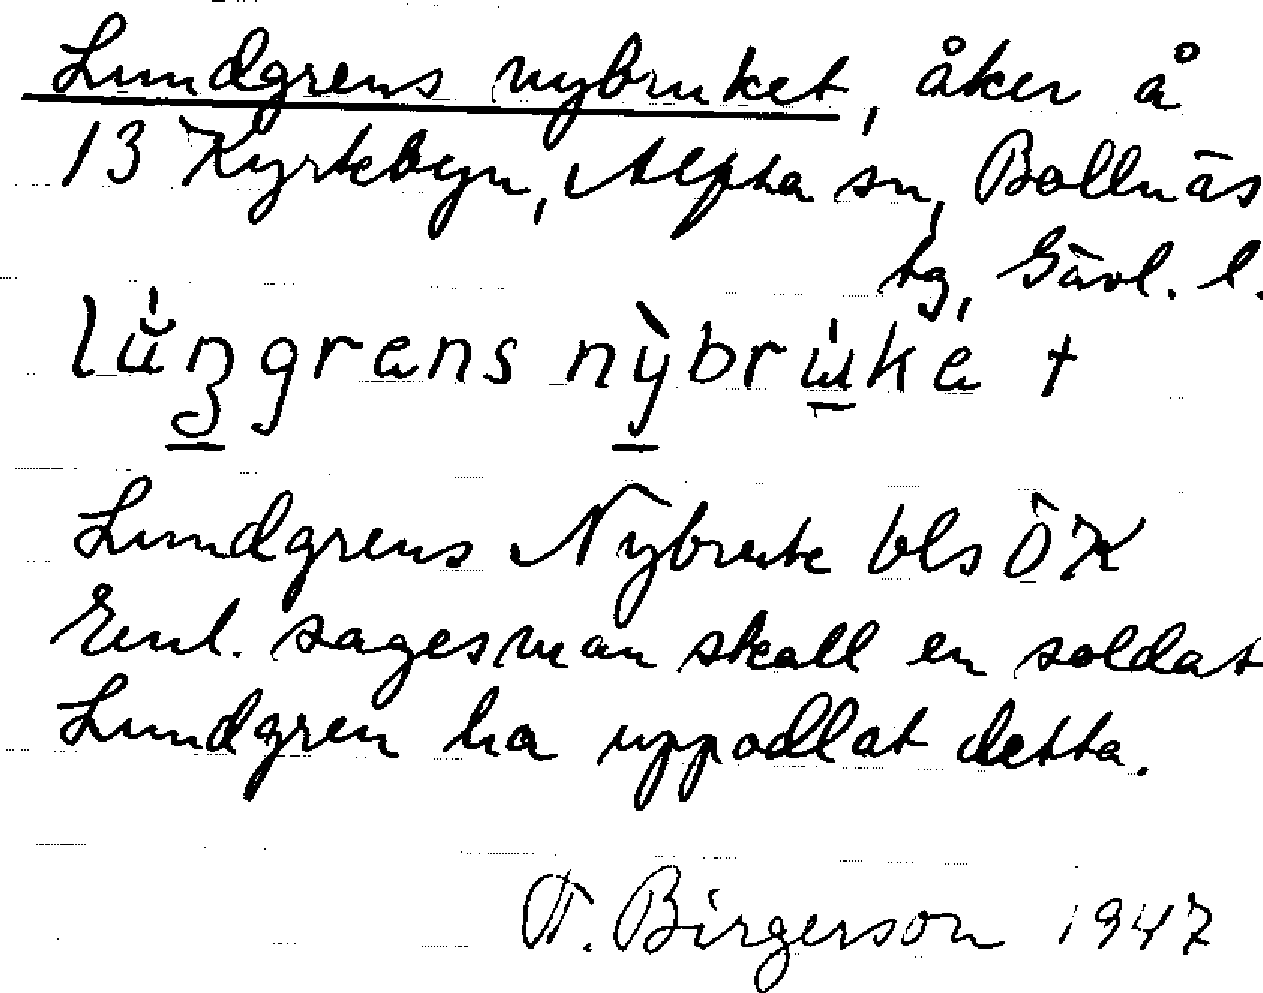 Lundgrens nybruket, åker å
13 Kyrkbyn, Alfta sn, Bollnäs
tg, Gävl. l.
Lundgrens Nybruk bls ÖK
Enl. sagesman skall en soldat
Lundgren ha uppodlat detta.
Birgerson 1947